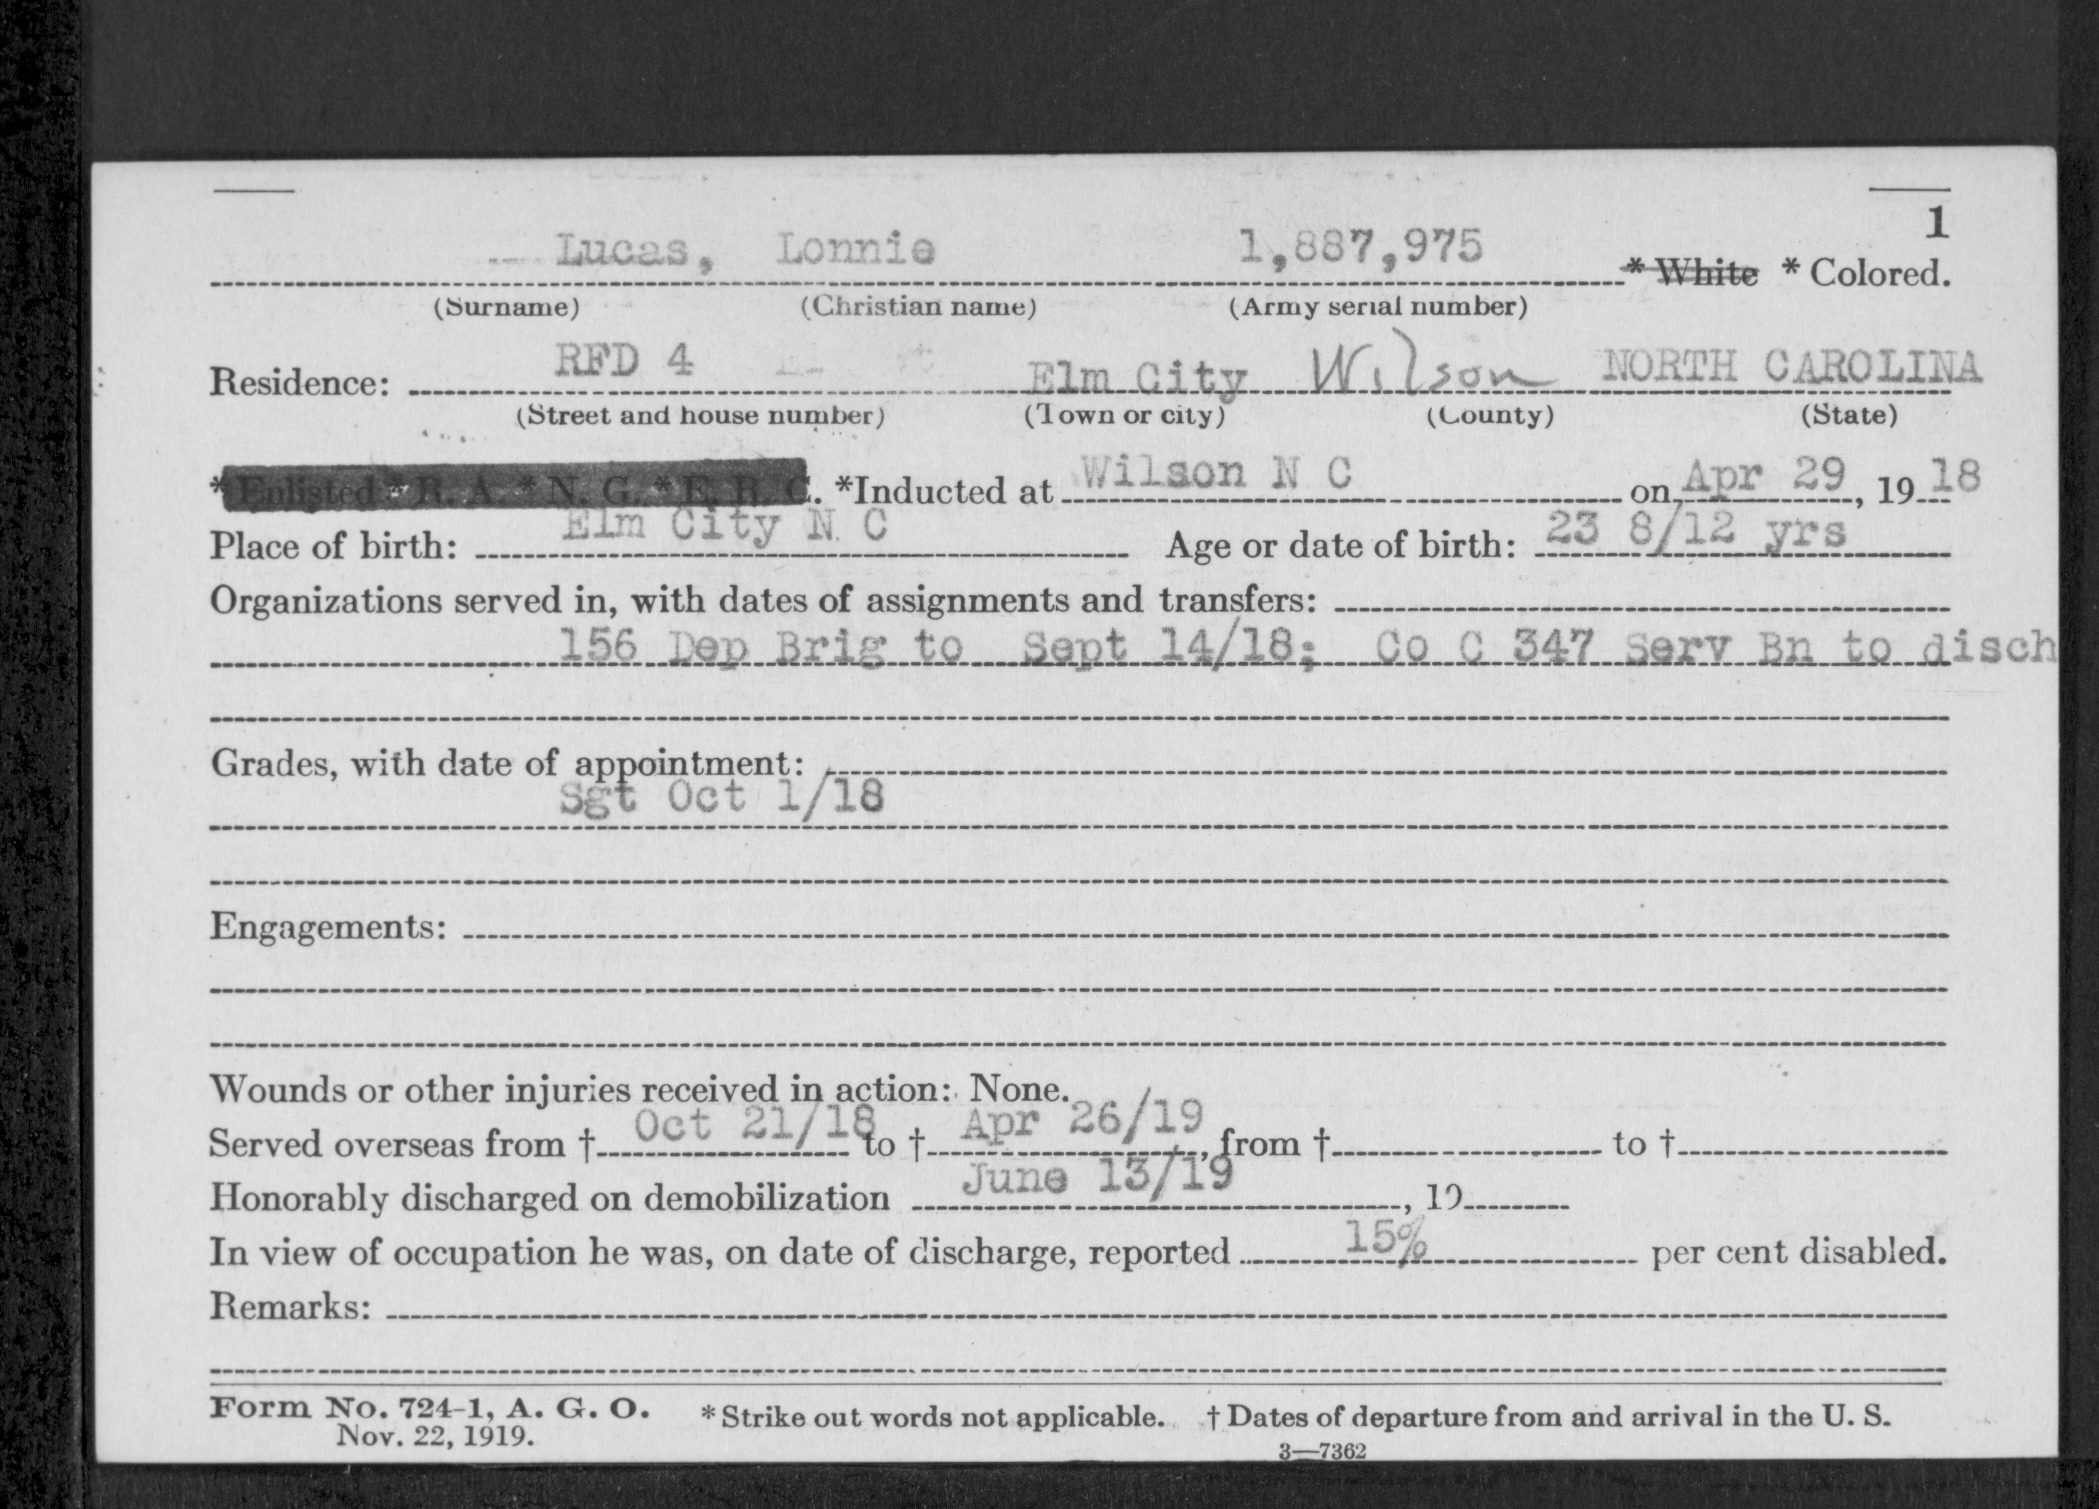 1
Lucas, Lonnie 1,887,975 * White * Colored.
(Surname) (Christian name) (Army serial number)
Residence: RFD 4 Elm City Wilson NORTH CAROLINA
(Street and house number) (Town or city) (County) (State)
* Enlisted * R. A. * N. G. * E. R. C. *Inducted at Wilson N C on Apr 29, 19 18
Place of birth: Elm City N C Age or date of birth: 23 8/12 yrs
Organizations served in, with dates of assignments and transfers:
156 Dep Brig to Sept 14/18; Co C 347 Serv Bn to disch
Grades, with date of appointment:
Sgt Oct 1/18
Engagements:
Wounds or other injuries received in action: None.
Served overseas from † Oct 21/18 to † Apr 26/19, from † to †
Honorably discharged on demobilization June 13/19, 19
In view of occupation he was, on date of discharge, reported 15% per cent disabled.
Remarks:
Form No. 724-1, A. G. O. * Strike out words not applicable. † Dates of departure from and arrival in the U. S.
Nov. 22, 1919.
3—7362